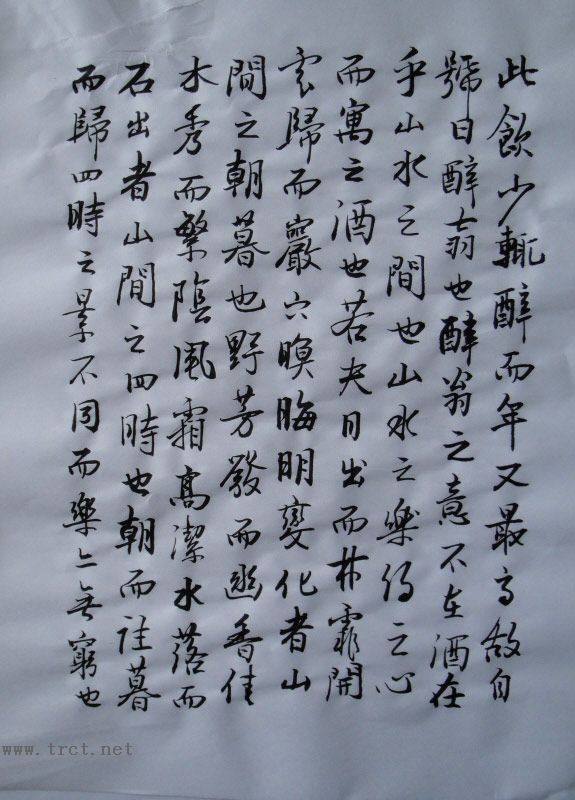 此飲少輒醉而年又最高故自
號曰醉翁也醉翁之意不在酒在
乎山水之間也山水之樂得之心
而寓之酒也若夫日出而林霏開
雲歸而巖穴暝晦明變化者山
間之朝暮也野芳發而幽香佳
木秀而繁陰風霜高潔水落而
石出者山間之四時也朝而往暮
而歸四時之景不同而樂亦無窮也
www.trct.net